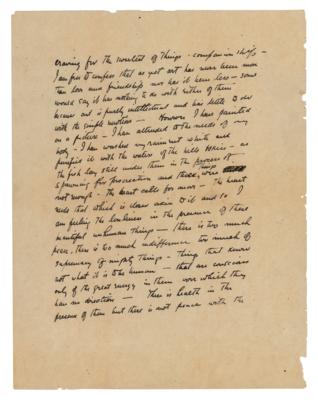 craving for the sweetest of things - companionship -
I am free to confess that as yet art has never been more
than love and friendship nor has it been less - some
would say it has nothing to do with either of them
because art is purely intellectual and has little to do
with the simple emotions - However I have painted
on a picture - I have attended to the needs of my
body - I have washed my raiment white and
purified it with the waters of the hills
the fish lay still under them in the process of
spawning for procreation and these things were
not enough - the heart calls for more - the heart
needs that which is closer akin to it and so I
am feeling the loneliness in the presence of these
beautiful unhuman things - there is too much
peace, there is too much indifference too much of
supremacy of mighty things - things that know
not what it is to be human - that are conscious
only of the great energy in them over which they
have no direction - There is health in the
presence of them but there is not peace with the